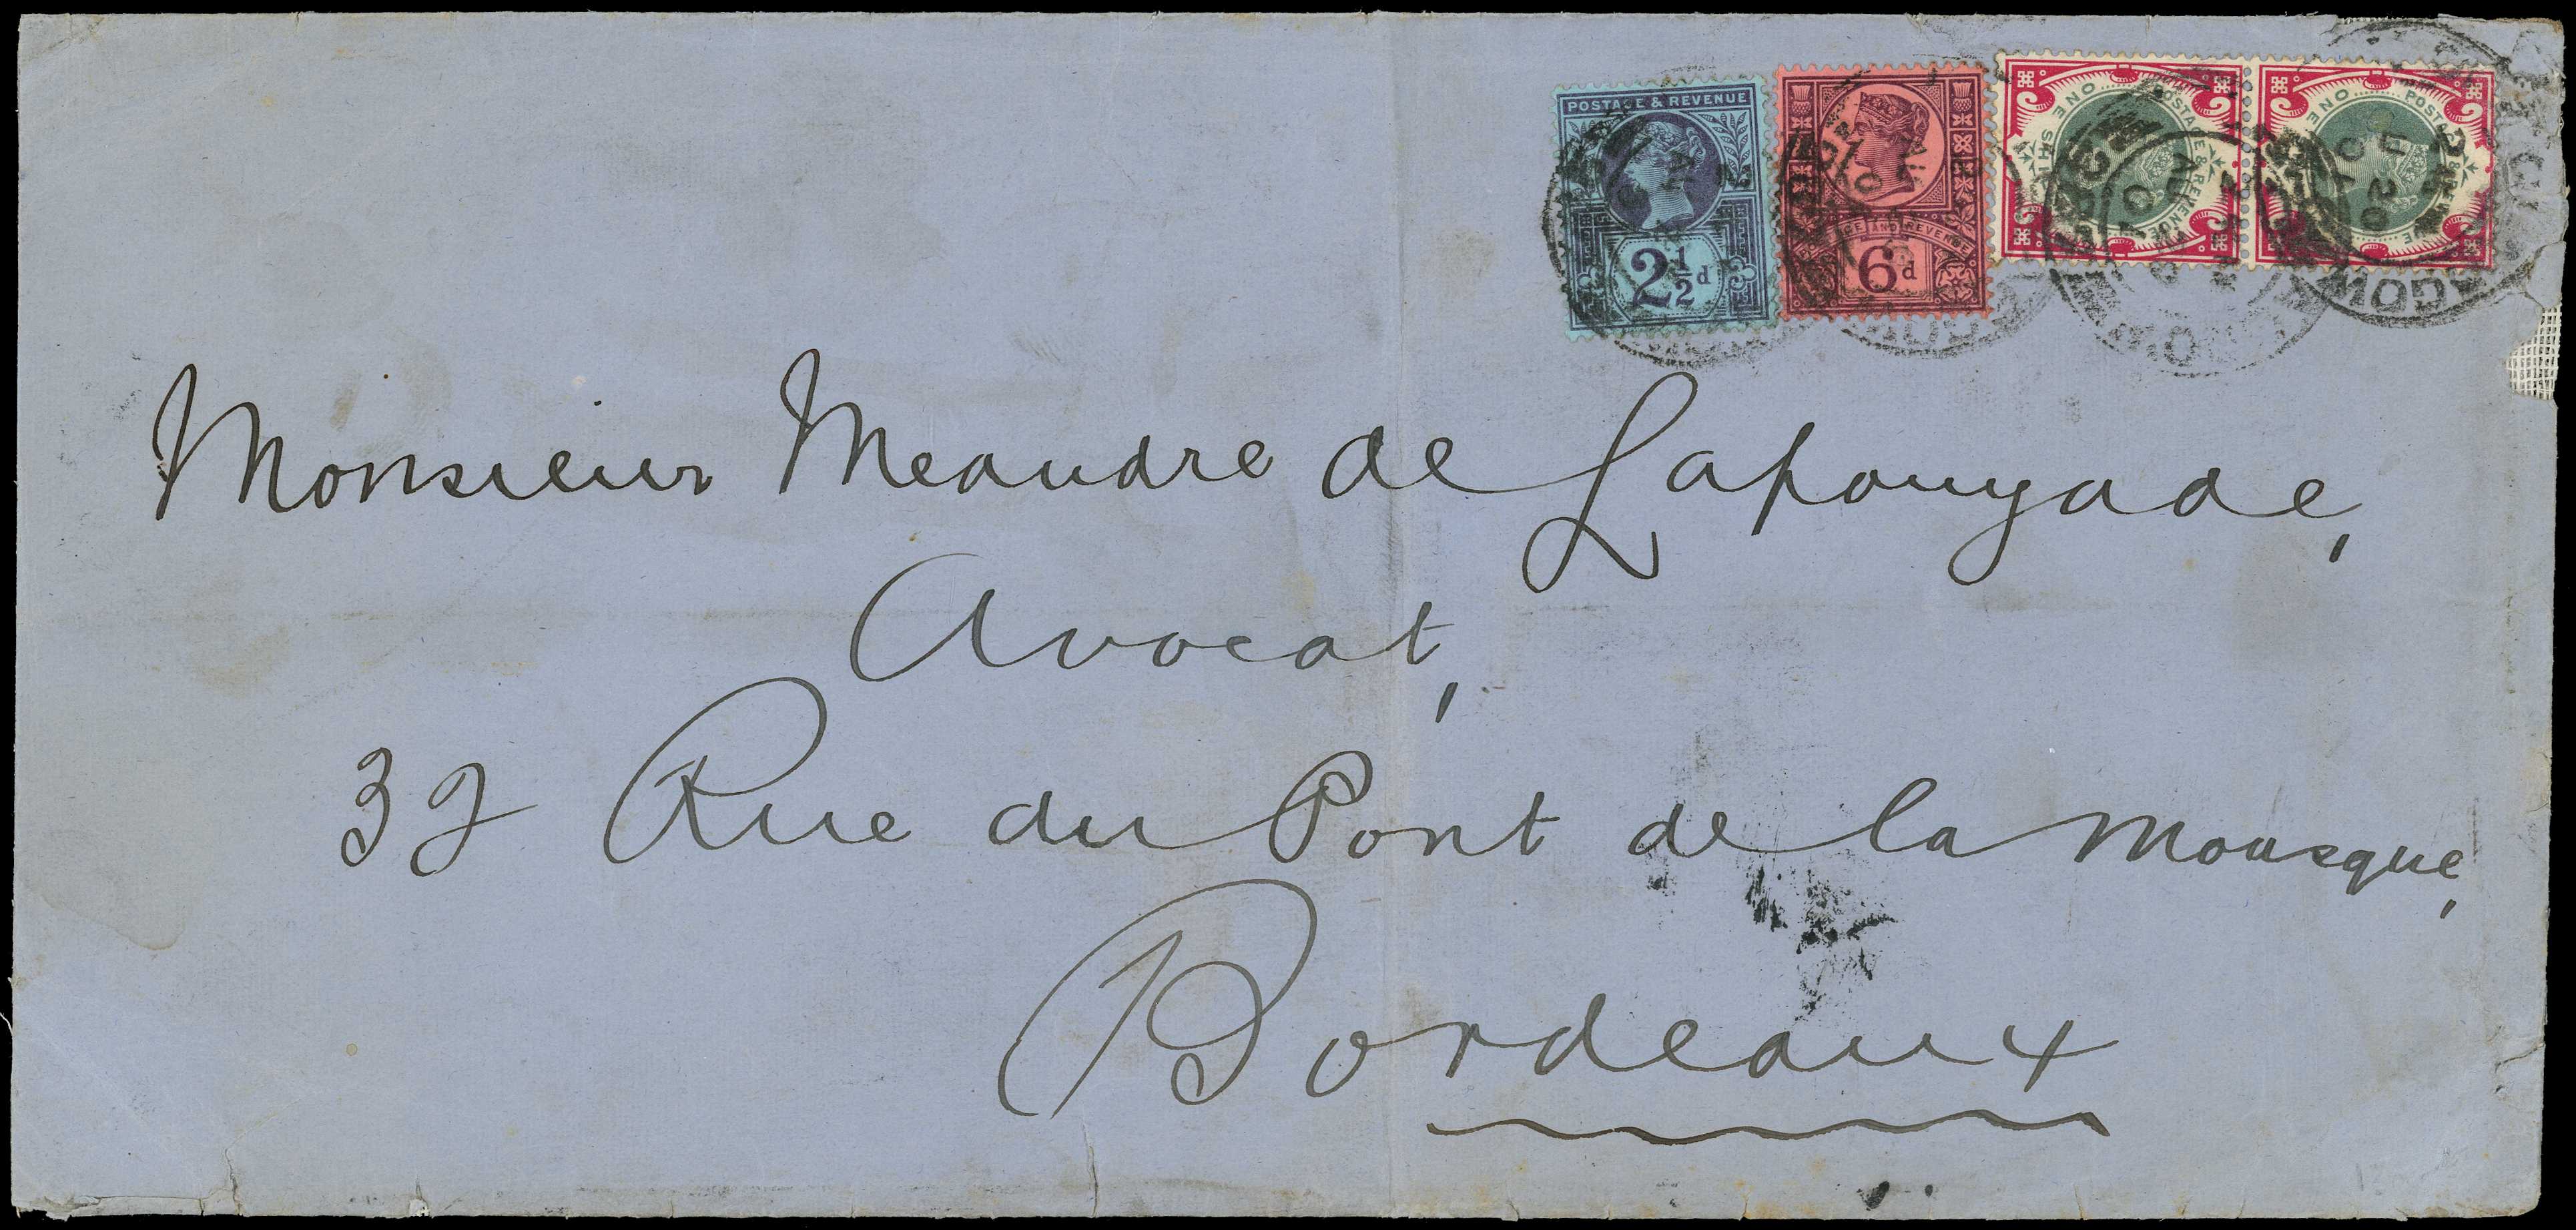 POSTAGE & REVENUE
2½d
POSTAGE AND REVENUE
6d
POSTAGE & REVENUE ONE SHI
POSTAGE & REVENUE ONE
Monsieur Meandre de Lapouyade,
Avocat,
32 Rue du Pont de la Mousque,
Bordeaux